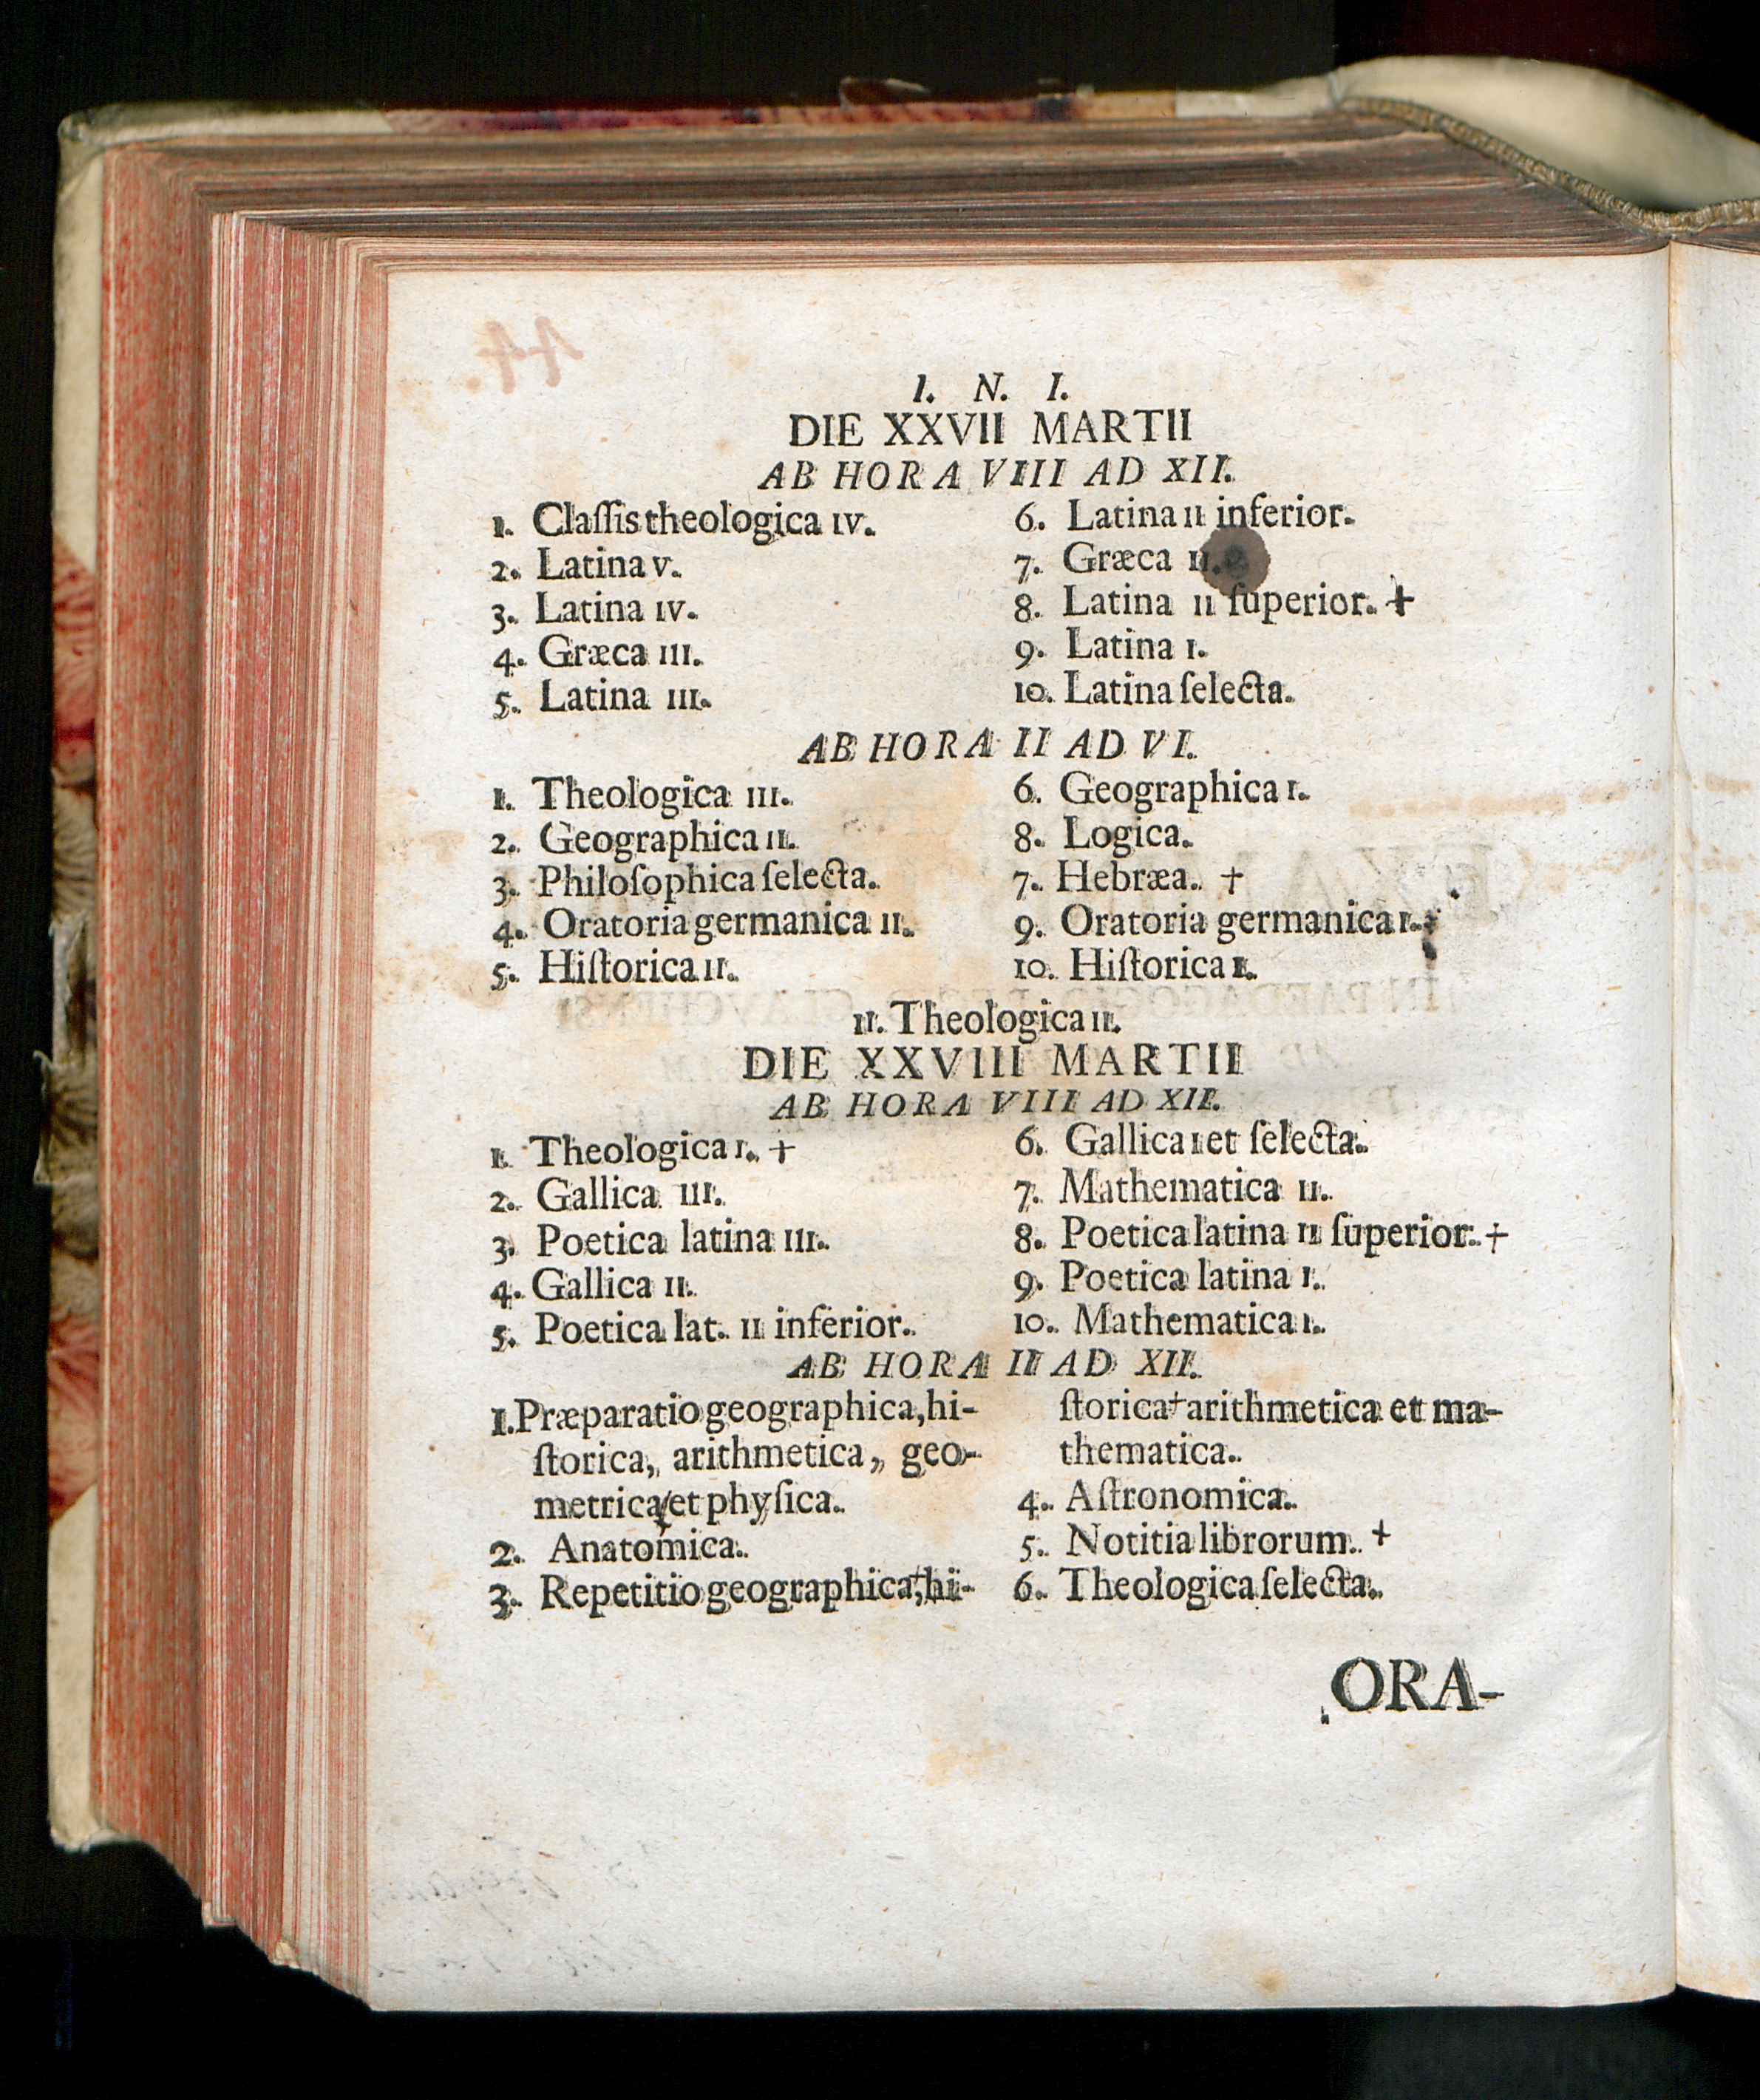 I. N. I.
DIE XXVII MARTII
AB HORA VIII AD XII.
1. Claſſis theologica IV.
2. Latina V.
3. Latina IV.
4. Græca III.
5. Latina III.
6. Latina II inferior.
7. Græca II.
8. Latina II ſuperior. +
9. Latina I.
10. Latina ſelecta.
AB HORA II AD VI.
1. Theologica III.
2. Geographica II.
3. Philoſophica ſelecta.
4. Oratoria germanica II.
5. Hiſtorica II.
6. Geographica I.
8. Logica.
7. Hebræa. +
9. Oratoria germanica I.
10. Hiſtorica I.
11. Theologica II.
DIE XXVIII MARTII
AB HORA VIII AD XII.
1. Theologica I. +
2. Gallica III.
3. Poetica latina III.
4. Gallica II.
5. Poetica lat. II inferior.
6. Gallica I et ſelecta.
7. Mathematica II.
8. Poetica latina II ſuperior. +
9. Poetica latina I.
10. Mathematica I.
AB HORA II AD XII.
1. Præparatio geographica, hi-
ſtorica, arithmetica, geo-
metrica et phyſica.
2. Anatomica.
3. Repetitio geographica, hi-
ſtorica + arithmetica et ma-
thematica.
4. Aſtronomica.
5. Notitia librorum. +
6. Theologica ſelecta.
ORA-